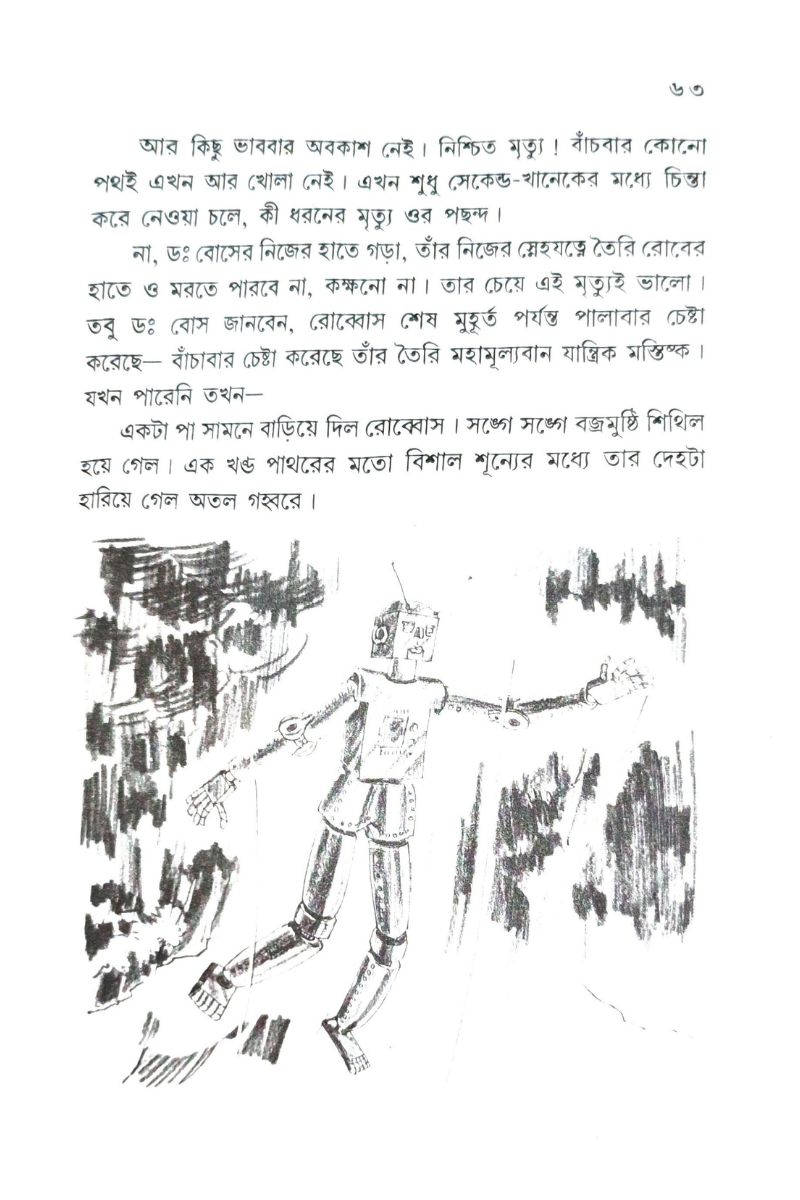 ৬৩
আর কিছু ভাববার অবকাশ নেই। নিশ্চিত মৃত্যু! বাঁচবার কোনো
পথই এখন আর খোলা নেই। এখন শুধু সেকেন্ড-খানেকের মধ্যে চিন্তা
করে নেওয়া চলে, কী ধরনের মৃত্যু ওর পছন্দ।
না, ডঃ বোসের নিজের হাতে গড়া, তাঁর নিজের স্নেহযত্নে তৈরি রোবের
হাতে ও মরতে পারবে না, কক্ষনো না। তার চেয়ে এই মৃত্যুই ভালো।
তবু ডঃ বোস জানবেন, রোব্বোস শেষ মুহূর্ত পর্যন্ত পালাবার চেষ্টা
করেছে— বাঁচাবার চেষ্টা করেছে তাঁর তৈরি মহামূল্যবান যান্ত্রিক মস্তিষ্ক।
যখন পারেনি তখন—
একটা পা সামনে বাড়িয়ে দিল রোব্বোস। সঙ্গে সঙ্গে বজ্রমুষ্ঠি শিথিল
হয়ে গেল। এক খন্ড পাথরের মতো বিশাল শূন্যের মধ্যে তার দেহটা
হারিয়ে গেল অতল গহ্বরে।